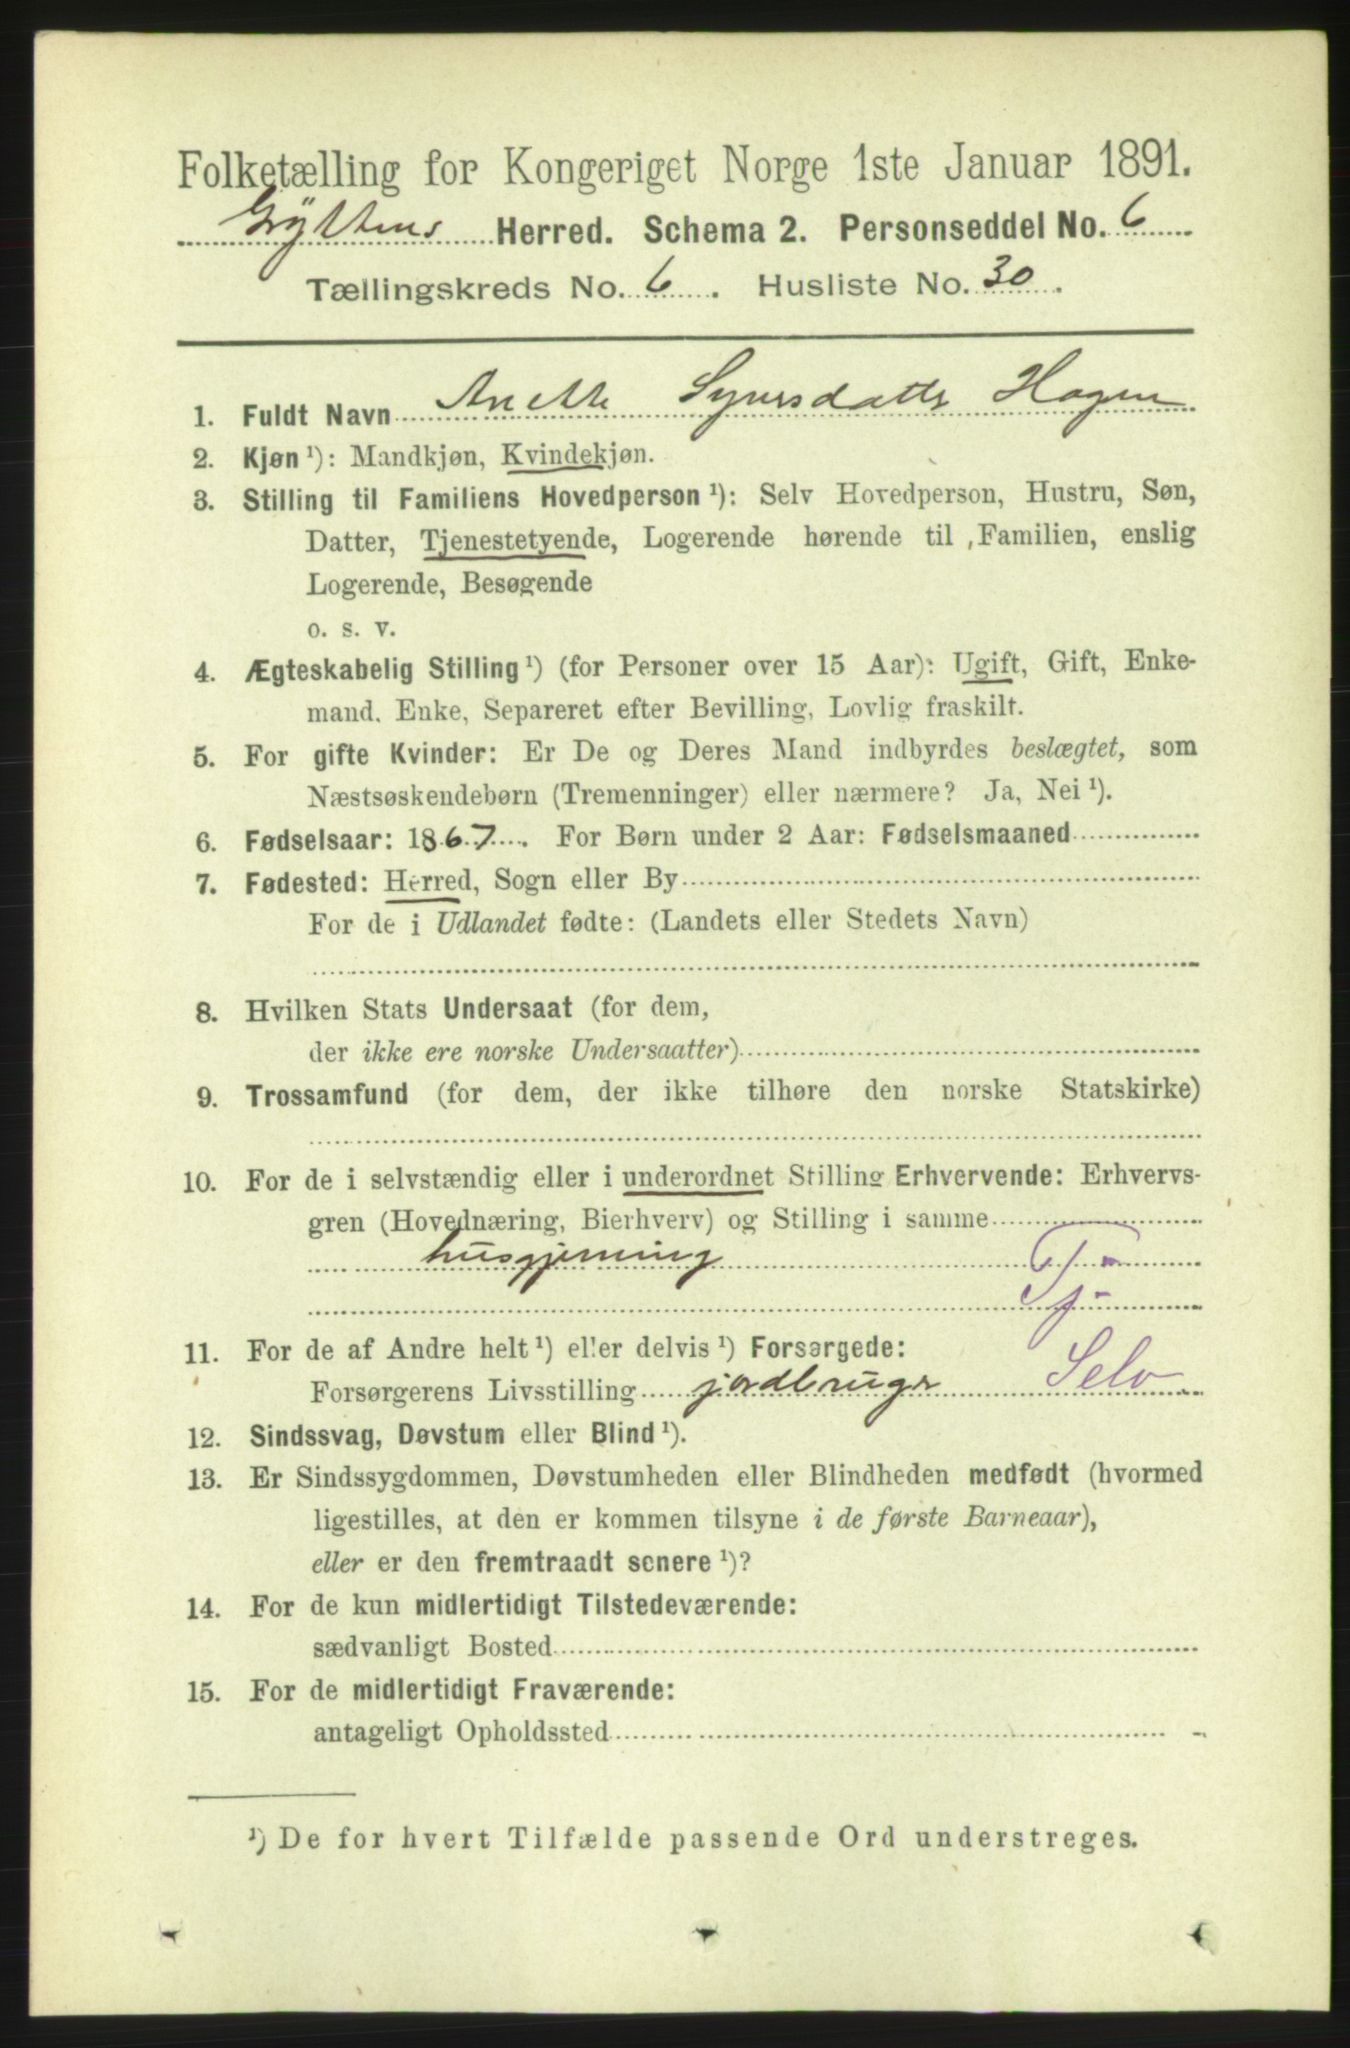 Folketælling for Kongeriget Norge 1ste Januar 1891.
Gryttens Herred. Schema 2. Personseddel No. 6
Tællingskreds No. 6. Husliste No. 30.
1. Fuldt Navn Anette Syversdatter Hagen
2. Kjøn ¹): Mandkjøn, Kvindekjøn.
3. Stilling til Familiens Hovedperson ¹): Selv Hovedperson, Hustru, Søn,
Datter, Tjenestetyende, Logerende hørende til Familien, enslig
Logerende, Besøgende
o. s. v.
4. Ægteskabelig Stilling ¹) (for Personer over 15 Aar): Ugift, Gift, Enke-
mand. Enke, Separeret efter Bevilling, Lovlig fraskilt.
5. For gifte Kvinder: Er De og Deres Mand indbyrdes beslægtet, som
Næstsøskendebørn (Tremenninger) eller nærmere? Ja, Nei ¹).
6. Fødselsaar: 1867. For Børn under 2 Aar: Fødselsmaaned
7. Fødested: Herred, Sogn eller By
For de i Udlandet fødte: (Landets eller Stedets Navn)
8. Hvilken Stats Undersaat (for dem,
der ikke ere norske Undersaatter)
9. Trossamfund (for dem, der ikke tilhøre den norske Statskirke)
10. For de i selvstændig eller i underordnet Stilling Erhvervende: Erhvervs-
gren (Hovednæring, Bierhverv) og Stilling i samme
husgjerning Tj-
11. For de af Andre helt ¹) eller delvis ¹) Forsørgede:
Forsørgerens Livsstilling jordbruger Selv
12. Sindssvag, Døvstum eller Blind ¹).
13. Er Sindssygdommen, Døvstumheden eller Blindheden medfødt (hvormed
ligestilles, at den er kommen tilsyne i de første Barneaar),
eller er den fremtraadt senere ¹)?
14. For de kun midlertidigt Tilstedeværende:
sædvanligt Bosted
15. For de midlertidigt Fraværende:
antageligt Opholdssted
¹) De for hvert Tilfælde passende Ord understreges.